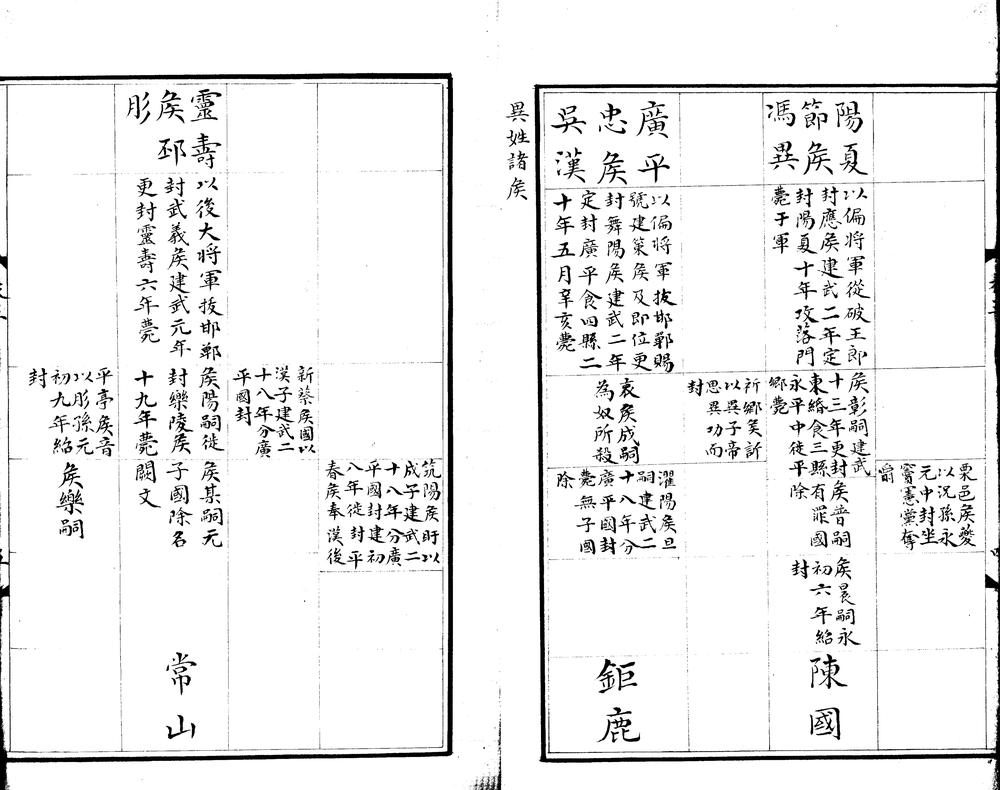 陽夏
節侯
馮異
以偏將軍從破王郎
封應侯建武二年定
封陽夏十年攻落門
薨于軍
侯彰嗣建武
十三年更封
東緡食三縣
永平中徙平
鄉薨
侯普嗣
有罪國
除
侯晨嗣永
初六年紹
封
陳國
栗邑侯夔
以況孫永
元中封坐
竇憲黨奪
爵
析鄉侯訢
以異子帝
思異功而
封
廣平
忠侯
吳漢
以偏將軍拔邯鄲賜
號建策侯及即位更
封舞陽侯建武二年
定封廣平食四縣二
十年五月辛亥薨
哀侯成嗣
為奴所殺
濯陽侯旦
嗣建武二
十八年分
廣平國封
薨無子國
除
鉅鹿
異姓諸侯
筑陽侯盱以
成子建武二
十八年分廣
平國封建初
八年徙封平
春侯奉漢後
新蔡侯國以
漢子建武二
十八年分廣
平國封
靈壽
侯邳
彤
以後大將軍拔邯鄲
封武義侯建武元年
更封靈壽六年薨
侯陽嗣徙
封樂陵侯
十九年薨
侯某嗣元
子國除名
闕文
常山
平亭侯音
以彤孫元
初九年紹
封
侯樂嗣